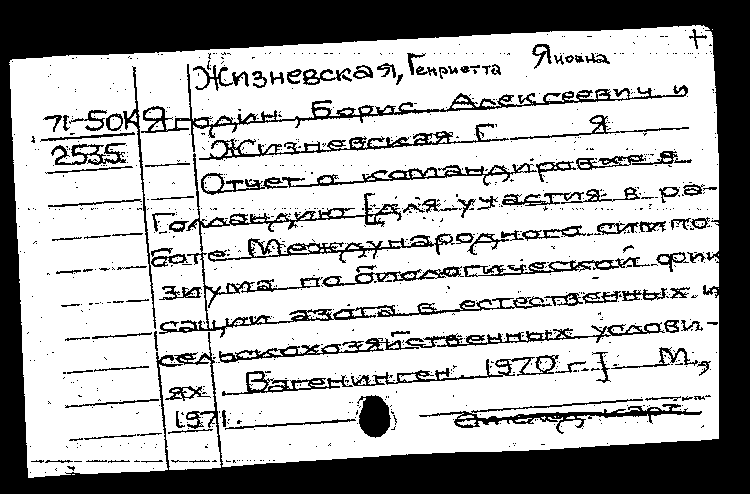 +
Жизневская, Генриетта Яновна
71-50К Ягодин, Борис Алексеевич и
2535 Жизневская Г Я
Отчет о командировке в
Голландию [для участия в ра-
боте Международного симпо-
зиума по биологической фик
сации азота в естественных и
сельскохозяйственных услови-
ях. Вагенинген. 1970 г.]. М.,
1971.